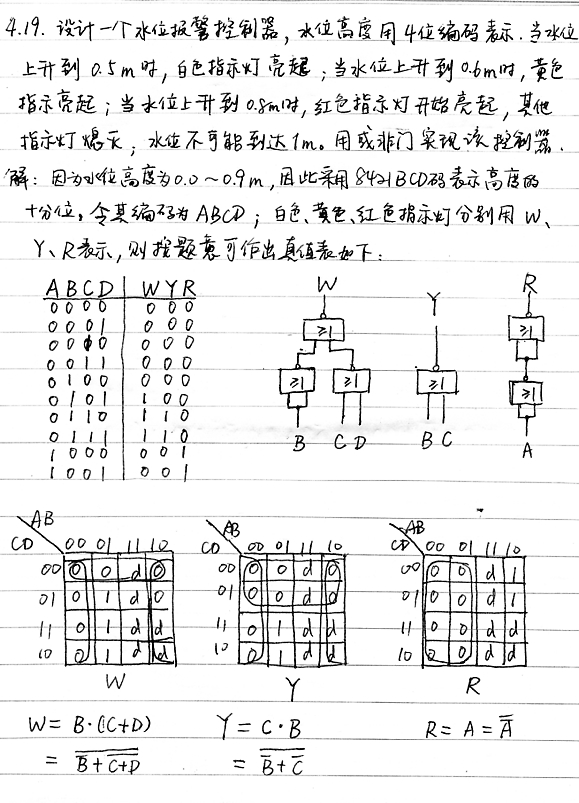 4.19. 设计一个水位报警控制器，水位高度用4位编码表示. 当水位
上升到 0.5m时，白色指示灯亮起；当水位上升到0.6m时，黄色
指示亮起；当水位上升到0.8m时，红色指示灯开始亮起，其他
指示灯熄灭；水位不可能到达1m。用或非门实现该控制器.
解：因为水位高度为0.0～0.9m，因此采用8421BCD码表示高度的
十分位，令其编码为ABCD；白色、黄色、红色指示灯分别用W、
Y、R表示，则按题意可作出真值表如下：
A B C D W Y R
0 0 0 0 0 0 0
0 0 0 1 0 0 0
0 0 1 0 0 0 0
0 0 1 1 0 0 0
0 1 0 0 0 0 0
0 1 0 1 1 0 0
0 1 1 0 1 1 0
0 1 1 1 1 1 0
1 0 0 0 0 0 1
1 0 0 1 0 0 1
W Y R
≥1 ≥1
≥1 ≥1 ≥1 ≥1
B C D B C A
AB AB AB
CD 00 01 11 10 CD 00 01 11 10 CD 00 01 11 10
00 0 0 d 0 00 0 0 d 0 00 0 0 d 1
01 0 1 d 0 01 0 0 d 0 01 0 0 d 1
11 0 1 d d 11 0 1 d d 11 0 0 d d
10 0 1 d d 10 0 1 d d 10 0 0 d d
W Y R
W = B·(C+D) Y = C·B R = A = A̅
= B̅+C̅+̅D̅ = B̅+C̅